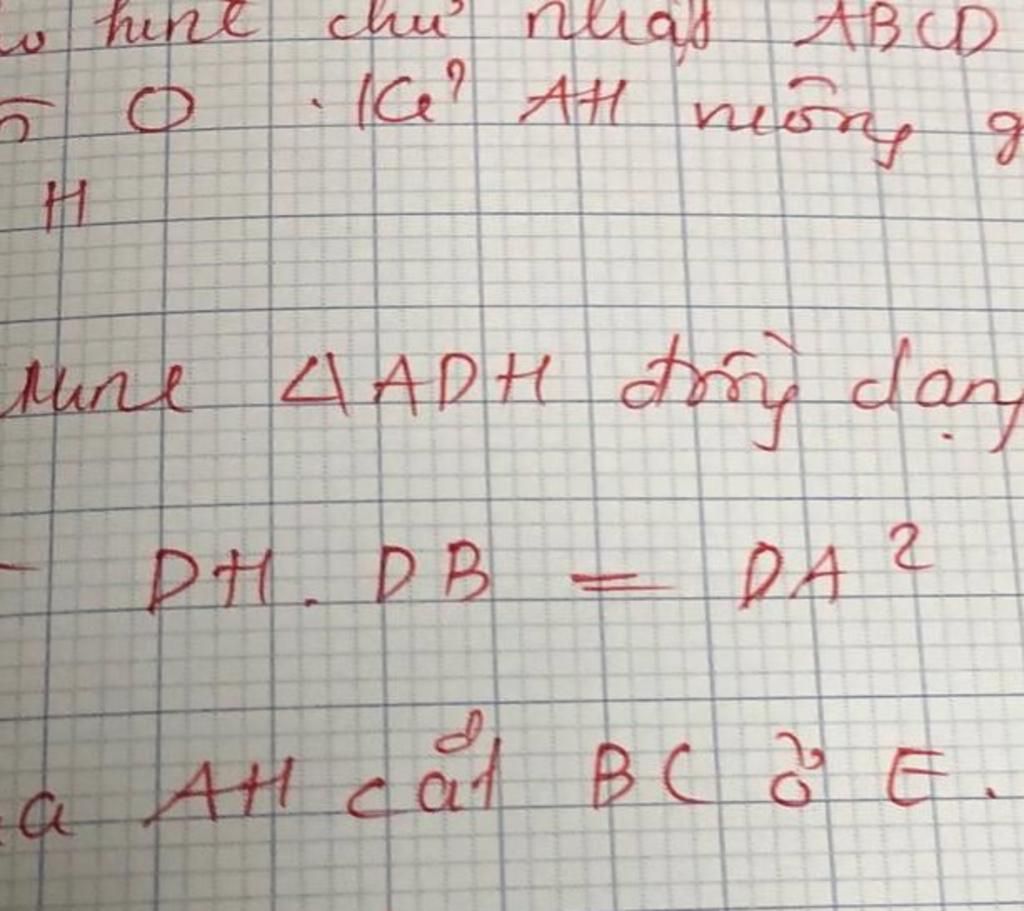 hình chữ nhật ABCD
O . Kẻ AH vuông g
H
minh △ADH đồng dạng
DH . DB = DA²
AH cắt BC ở E.